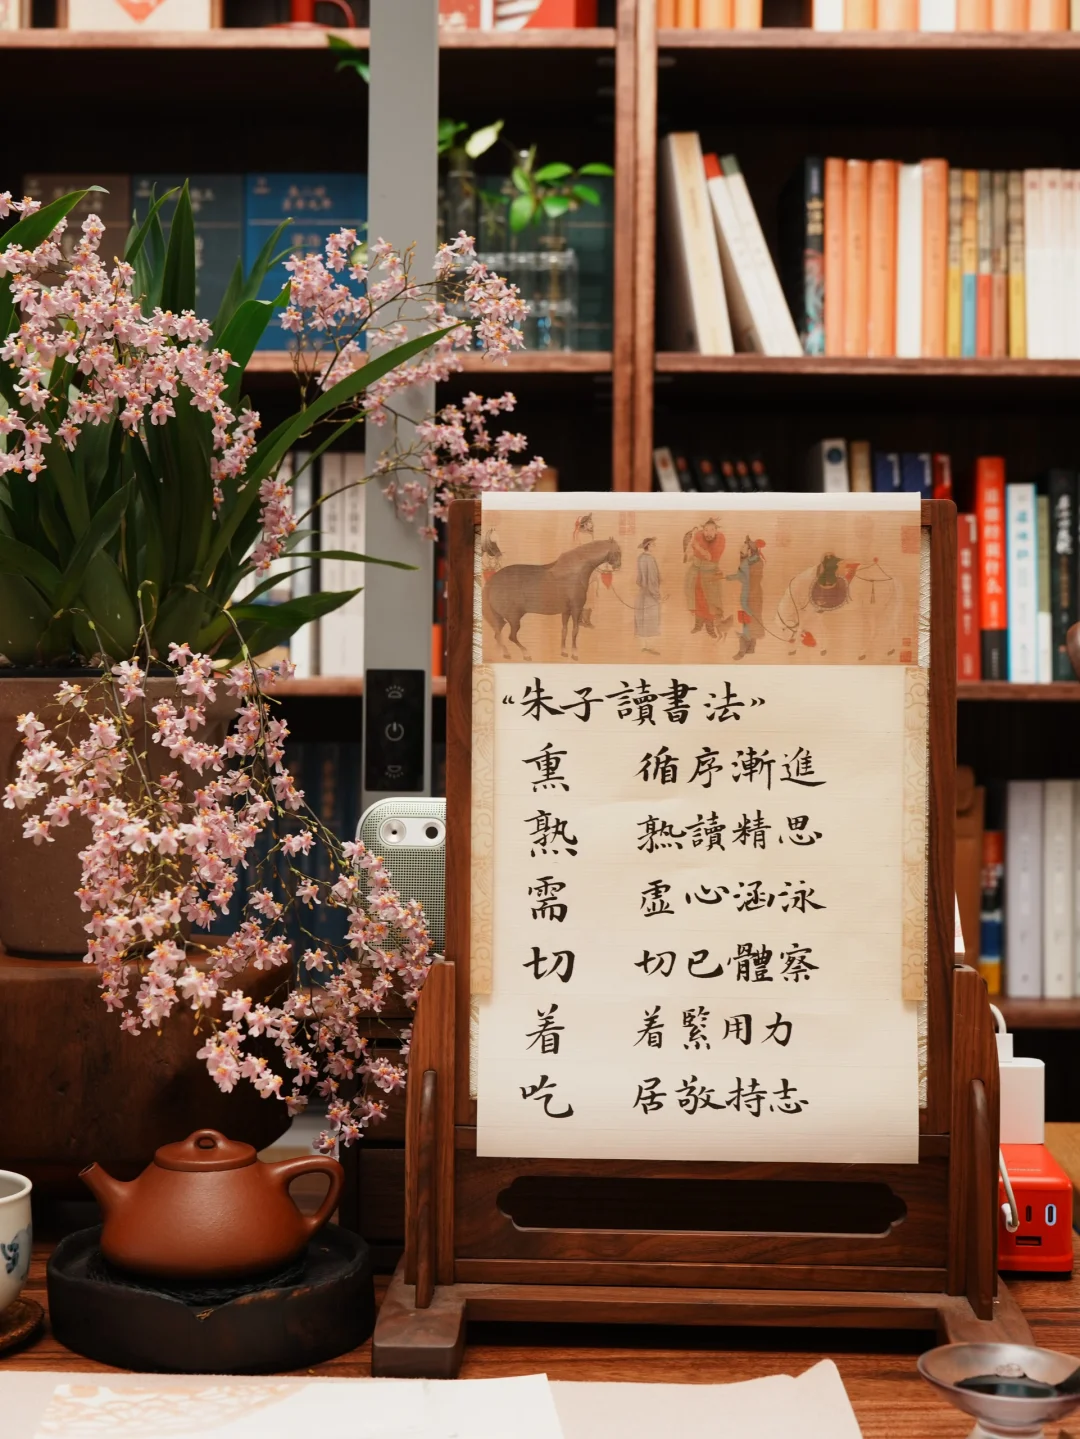 “朱子讀書法”
熏 循序漸進
熟 熟讀精思
需 虛心涵泳
切 切己體察
着 着緊用力
吃 居敬持志